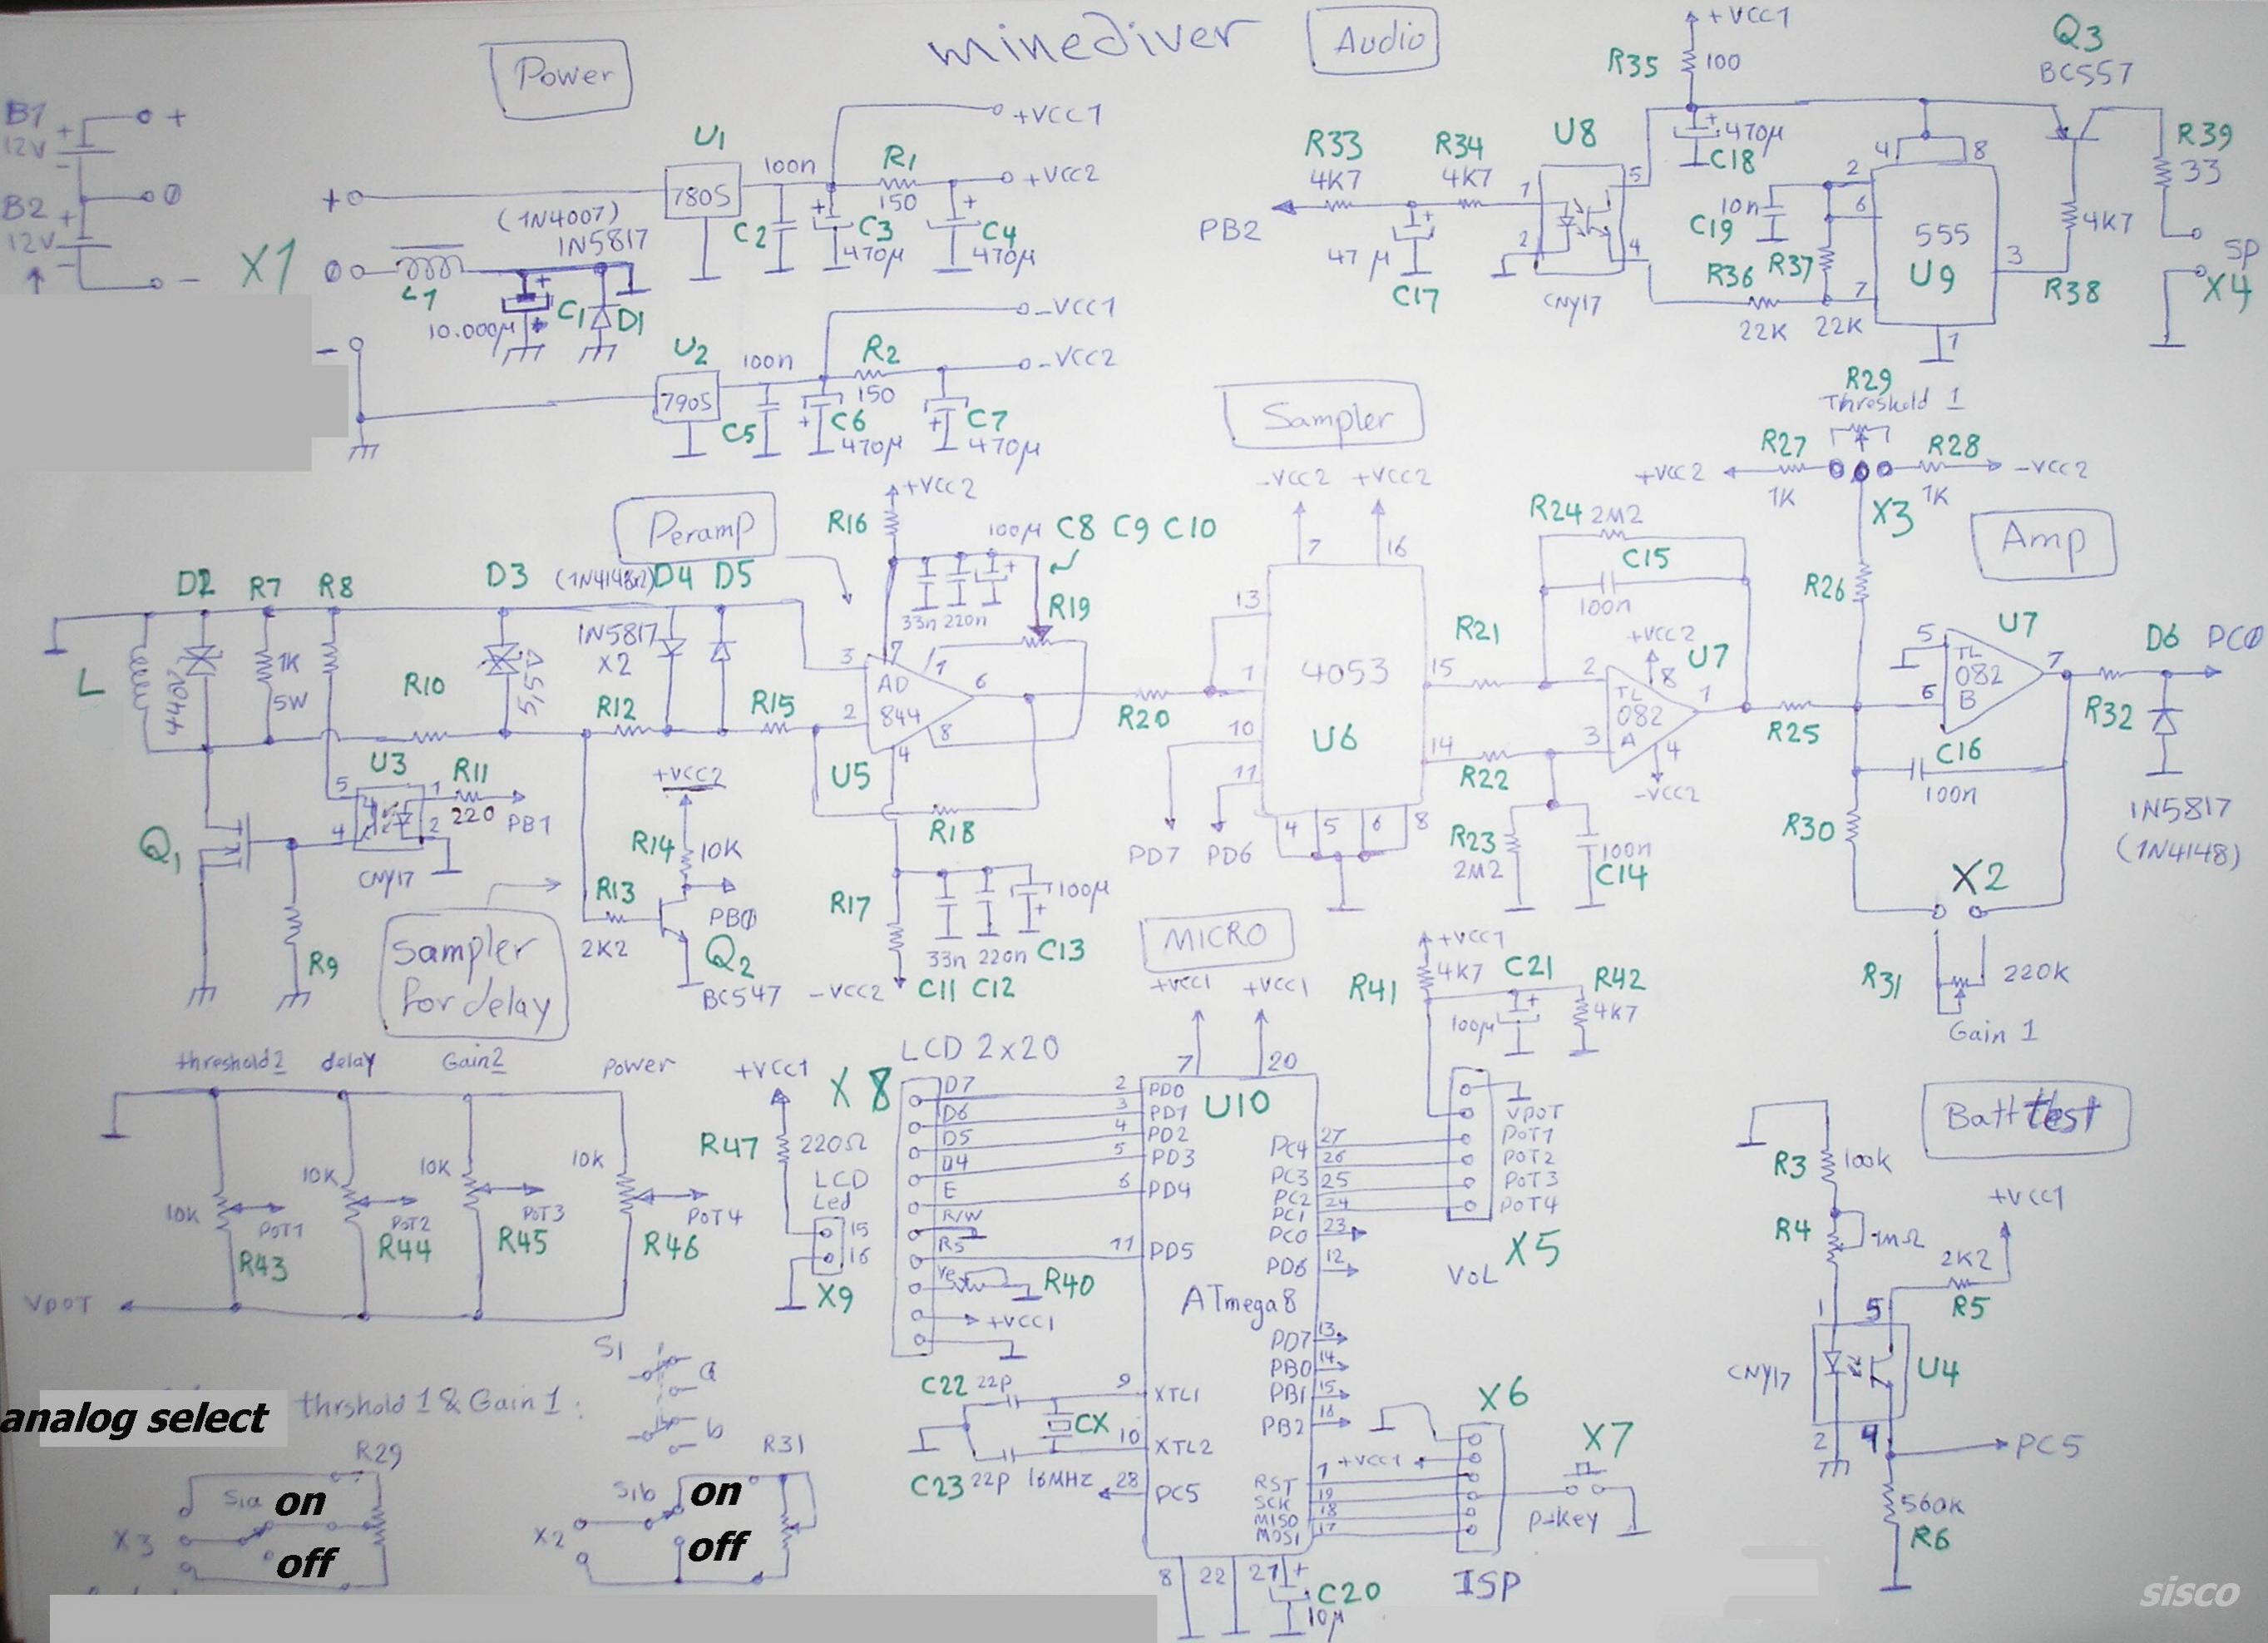 minediver
Power
B1
12V
+
-
+
B2
12V
+
-
0
-
X1
+
0
-
L1
(1N4007)
1N5817
10.000µ
+
C1
D1
U1
7805
100n
C2
+
C3
470µ
R1
150
+
C4
470µ
+VCC1
+VCC2
U2
7905
100n
C5
+
C6
470µ
R2
150
+
C7
470µ
-VCC1
-VCC2
Audio
+VCC1
R35
100
+
470µ
C18
PB2
R33
4K7
R34
4K7
+
47µ
C17
U8
1
2
5
4
CNY17
10n
C19
R36
22K
R37
22K
4
8
2
6
7
3
1
555
U9
Q3
BC557
4K7
R38
R39
33
SP
X4
Peramp
L
D2
440V
R7
1K
5W
R8
R10
D3
5,5V
(1N4148x2)
D4
D5
1N5817
x2
R12
R15
+VCC2
R16
100µ
C8 C9 C10
33n 220n
+
R19
3
2
7
1
6
8
4
AD
844
U5
R18
R17
33n 220n
100µ
+
C11 C12
C13
-VCC2
Q1
U3
5
4
1
2
CNY17
R11
220
PB1
R9
Sampler
for delay
R13
2K2
+VCC2
R14
10K
PB0
Q2
BC547
Sampler
-VCC2
+VCC2
7
16
13
1
10
11
15
14
4
5
6
8
4053
U6
R20
PD7
PD6
R21
R22
R23
2M2
100n
C14
R24
2M2
C15
100n
+VCC2
8
2
3
1
4
TL
082
A
U7
-VCC2
R25
Amp
R29
Threshold 1
R27
1K
+VCC2
R28
1K
-VCC2
X3
R26
5
6
7
TL
082
B
U7
C16
100n
R30
X2
R31
220K
Gain 1
R32
D6
PC0
1N5817
(1N4148)
threshold2
delay
Gain2
Power
10K
POT1
R43
10K
POT2
R44
10K
POT3
R45
10K
POT4
R46
VPOT
+VCC1
R47
220Ω
LCD
Led
15
16
X9
LCD 2x20
X8
D7
D6
D5
D4
E
R/W
RS
Ve
R40
+VCC1
MICRO
+VCC1
+VCC1
7
20
U10
ATmega8
2
PD0
3
PD1
4
PD2
5
PD3
6
PD4
11
PD5
9
XTL1
10
XTL2
28
PC5
PC4
27
PC3
26
PC2
25
PC1
24
PC0
23
PD6
12
PD7
13
PB0
14
PB1
15
PB2
16
RST
1
SCK
19
MISO
18
MOSI
17
8
22
21
+
C20
10µ
C22
22P
C23
22P
CX
16MHZ
+VCC1
R41
4K7
C21
100µ
+
R42
4K7
VPOT
POT1
POT2
POT3
POT4
X5
VOL
X6
+VCC1
ISP
X7
P-key
Batt test
R3
100K
R4
1MΩ
+VCC1
2K2
R5
1
5
2
4
CNY17
U4
PC5
560K
R6
analog select
thrshold 1 & Gain 1 :
S1
a
b
R29
X3
S1a
on
off
R31
X2
S1b
on
off
sisco